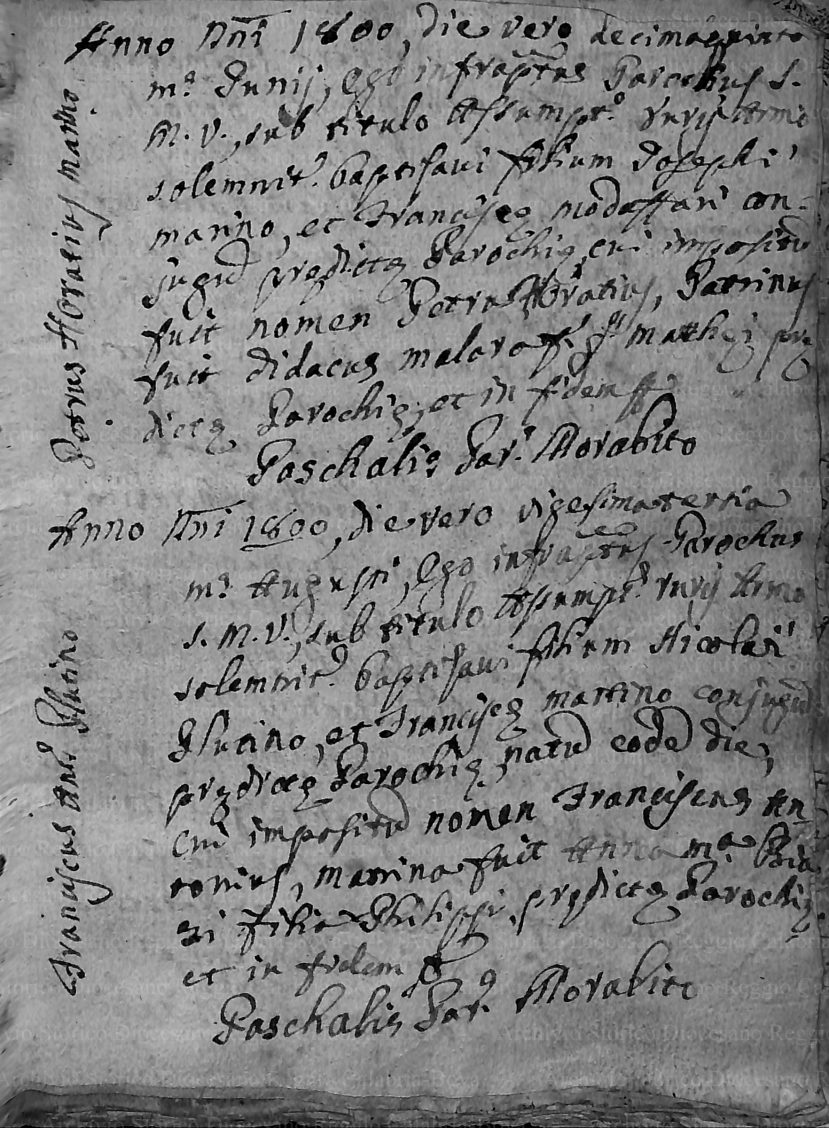 Petrus Horatius marino
Anno Dñi 1800, die vero decimaquinta
m.s Junij, Ego infraptus Parochus S.
M. V., sub titulo Assumpt.s ruris Armo
solemnit.r baptisavi filium Josephi
marino, et Franciscę modaffari con-
jugū prędictę Parochię, cui impositū
fuit nomen Petrus Horatius, Patrinus
fuit Didacus malara f.s q.m matthęi prę
dictę Parochię, et in fidem
Paschalis Par.s Morabito
Franciscus Ant.s Plutino
Anno Dñi 1800, die vero vigesimatertia
m.s Augusti, Ego infraptus Parochus
S. M. V., sub titulo Assumpt.s ruris Armo
solemnit.r baptisavi filium Nicolai
Plutino, et Franciscę martino conjugū
prędictę Parochię natū eodē die,
cui impositū nomen Franciscus An
tonius, matrina fuit Anna m.a
filia Philippi prędictę Parochię
et in fidem
Paschalis Par.s Morabito